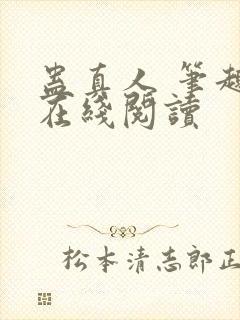 蛊真人 笔趣
在綫閱讀
松本清志郎正